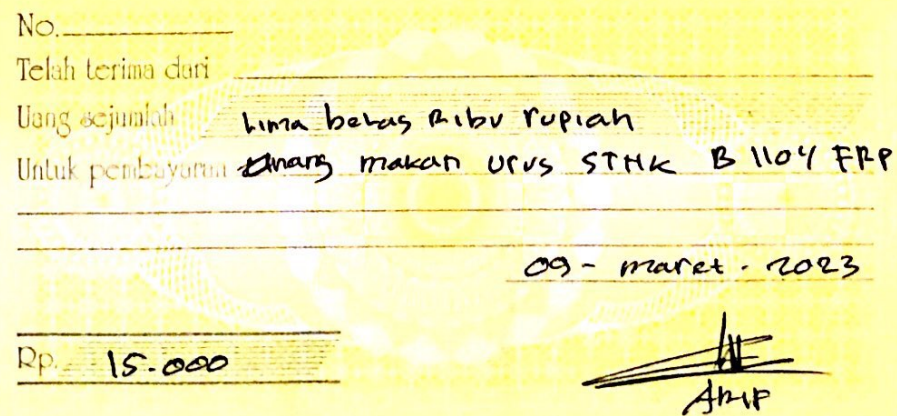 No.
Telah terima dari
Uang sejumlah Lima belas Ribu rupiah
Untuk pembayaran Uang makan urus STNK B 1104 FRP
09 - maret - 2023
Rp. 15.000
ARIP